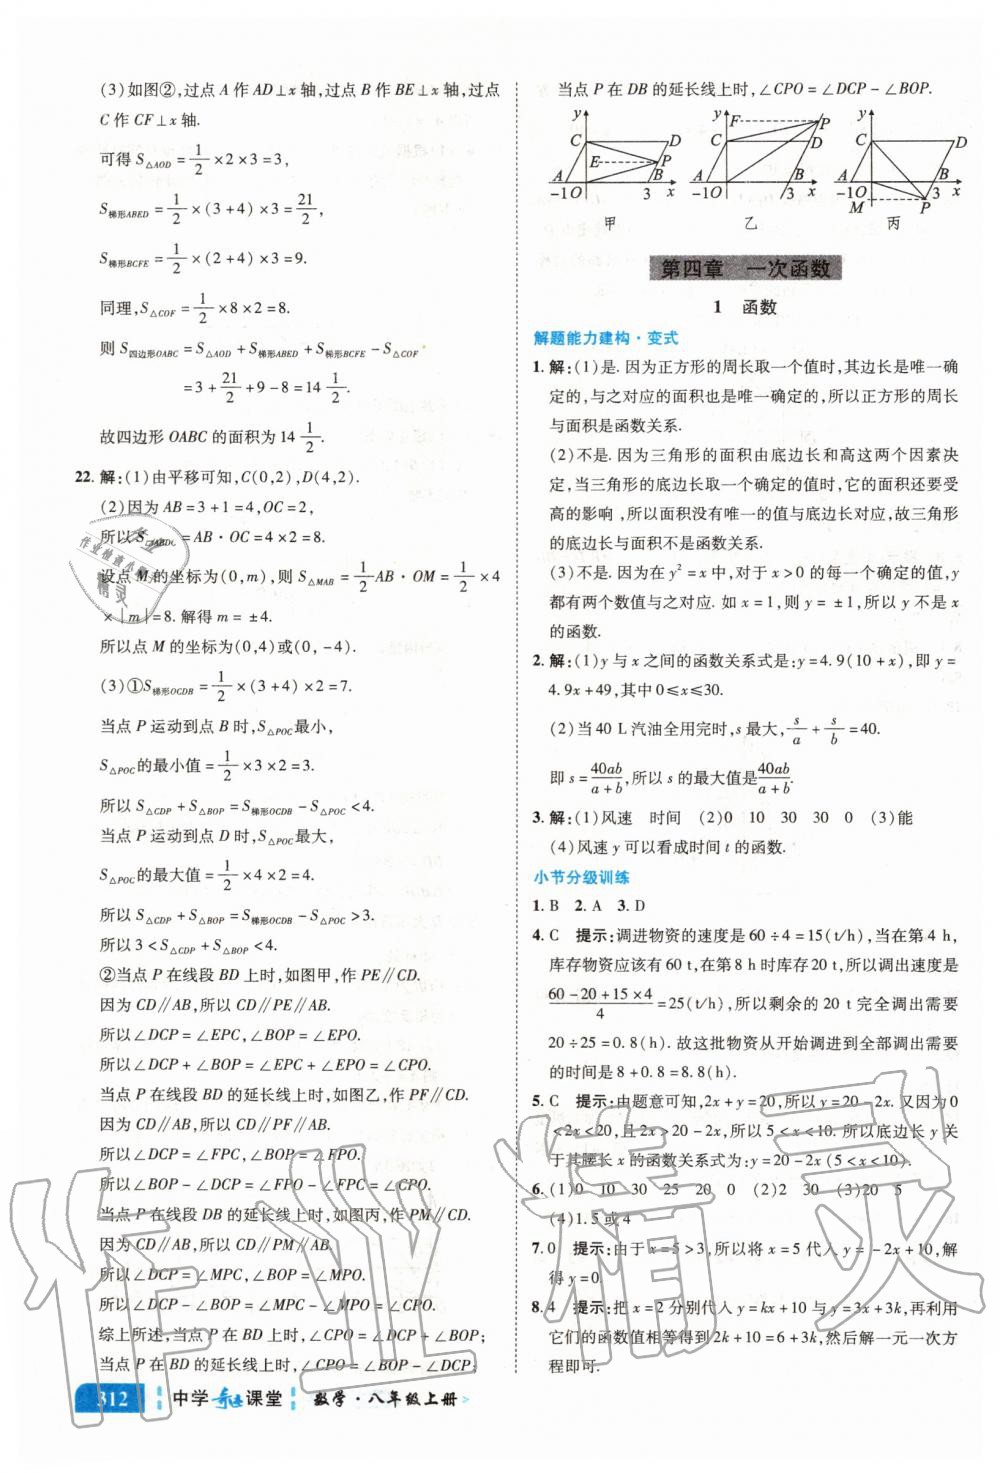 (3)如图②,过点 A 作 AD⊥x 轴,过点 B 作 BE⊥x 轴,过点
C 作 CF⊥x 轴.
可得 S△AOD = 1/2 ×2×3=3,
S梯形ABED = 1/2 ×(3+4)×3= 21/2,
S梯形BCFE = 1/2 ×(2+4)×3=9.
同理,S△COF = 1/2 ×8×2=8.
则 S四边形OABC = S△AOD + S梯形ABED + S梯形BCFE − S△COF
=3+ 21/2 +9−8=14 1/2.
故四边形 OABC 的面积为 14 1/2.
22. 解:(1)由平移可知,C(0,2),D(4,2).
(2)因为 AB=3+1=4,OC=2,
所以 S▱ABDC=AB·OC=4×2=8.
设点 M 的坐标为(0,m),则 S△MAB = 1/2 AB·OM= 1/2 ×4
×|m|=8. 解得 m=±4.
所以点 M 的坐标为(0,4)或(0,−4).
(3)①S梯形OCDB = 1/2 ×(3+4)×2=7.
当点 P 运动到点 B 时,S△POC最小,
S△POC的最小值= 1/2 ×3×2=3.
所以 S△CDP + S△BOP = S梯形OCDB − S△POC <4.
当点 P 运动到点 D 时,S△POC最大,
S△POC的最大值= 1/2 ×4×2=4.
所以 S△CDP + S△BOP = S梯形OCDB − S△POC >3.
所以 3<S△CDP + S△BOP <4.
②当点 P 在线段 BD 上时,如图甲,作 PE∥CD.
因为 CD∥AB,所以 CD∥PE∥AB.
所以∠DCP=∠EPC,∠BOP=∠EPO.
所以∠DCP+∠BOP=∠EPC+∠EPO=∠CPO.
当点 P 在线段 BD 的延长线上时,如图乙,作 PF∥CD.
因为 CD∥AB,所以 CD∥PF∥AB.
所以∠DCP=∠FPC,∠BOP=∠FPO.
所以∠BOP−∠DCP=∠FPO−∠FPC=∠CPO.
当点 P 在线段 DB 的延长线上时,如图丙,作 PM∥CD.
因为 CD∥AB,所以 CD∥PM∥AB.
所以∠DCP=∠MPC,∠BOP=∠MPO.
所以∠DCP−∠BOP=∠MPC−∠MPO=∠CPO.
综上所述,当点 P 在线段 BD 上时,∠CPO=∠DCP+∠BOP;
当点 P 在 BD 的延长线上时,∠CPO=∠BOP−∠DCP;
312 中学奇迹课堂 数学·八年级上册
当点 P 在 DB 的延长线上时,∠CPO=∠DCP−∠BOP.
y C D E P A B −1 O 3 x 甲
y F P C D A B −1 O 3 x 乙
y C D A B −1 O 3 x M P 丙
第四章 一次函数
1 函数
解题能力建构·变式
1. 解:(1)是. 因为正方形的周长取一个值时,其边长是唯一确
定的,与之对应的面积也是唯一确定的,所以正方形的周长
与面积是函数关系.
(2)不是. 因为三角形的面积由底边长和高这两个因素决
定,当三角形的底边长取一个确定的值时,它的面积还要受
高的影响,所以面积没有唯一的值与底边长对应,故三角形
的底边长与面积不是函数关系.
(3)不是. 因为在 y²=x 中,对于 x>0 的每一个确定的值,y
都有两个数值与之对应. 如 x=1,则 y=±1,所以 y 不是 x
的函数.
2. 解:(1)y 与 x 之间的函数关系式是:y=4.9(10+x),即 y=
4.9x+49,其中 0≤x≤30.
(2)当 40 L 汽油全用完时,s 最大, s/a + s/b =40.
即 s= 40ab/(a+b),所以 s 的最大值是 40ab/(a+b).
3. 解:(1)风速 时间 (2)0 10 30 30 0 (3)能
(4)风速 y 可以看成时间 t 的函数.
小节分级训练
1. B 2. A 3. D
4. C 提示:调进物资的速度是 60÷4=15(t/h),当在第 4 h,
库存物资应该有 60 t,在第 8 h 时库存 20 t,所以调出速度是
(60−20+15×4)/4 =25(t/h),所以剩余的 20 t 完全调出需要
20÷25=0.8(h). 故这批物资从开始调进到全部调出需要
的时间是 8+0.8=8.8(h).
5. C 提示:由题意可知,2x+y=20,所以 y=20−2x. 又因为 0
<2x<20,且 2x>20−2x,所以 5<x<10. 所以底边长 y 关
于其腰长 x 的函数关系式为:y=20−2x(5<x<10).
6. (1)0 10 30 25 20 0 (2)2 30 (3)20 5
(4)1.5 或 4
7. 0 提示:由于 x=5>3,所以将 x=5 代入 y=−2x+10,解
得 y=0.
8. 4 提示:把 x=2 分别代入 y=kx+10 与 y=3x+3k,再利用
它们的函数值相等得到 2k+10=6+3k,然后解一元一次方
程即可.
作业精灵